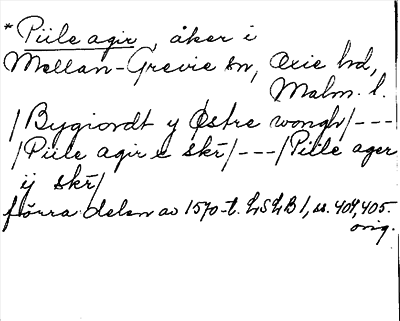 * Piile agir, åker i
Mellan-Grevie sn, Oxie hd,
Malm. l.
/Bygiordt y Østre wongh/---
/Piile agir e skr̄/---/Piile ager
ij skr̄/
förra delen av 1570-t. LSLB 1, s. 404, 405.
orig.